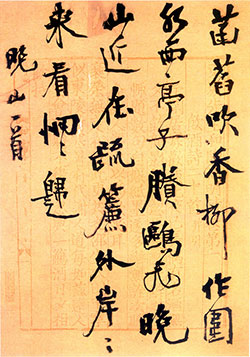 菡萏吹香柳作圍
水西亭子賸鷗飛晚
山近在疏簾外岸〻
來看惘〻歸
晚山一首